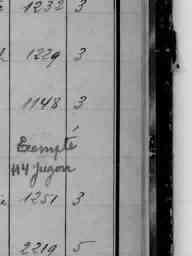 1232 3
1229 3
1148 3
Exempté
114 Jugon
1251 3
2219 5